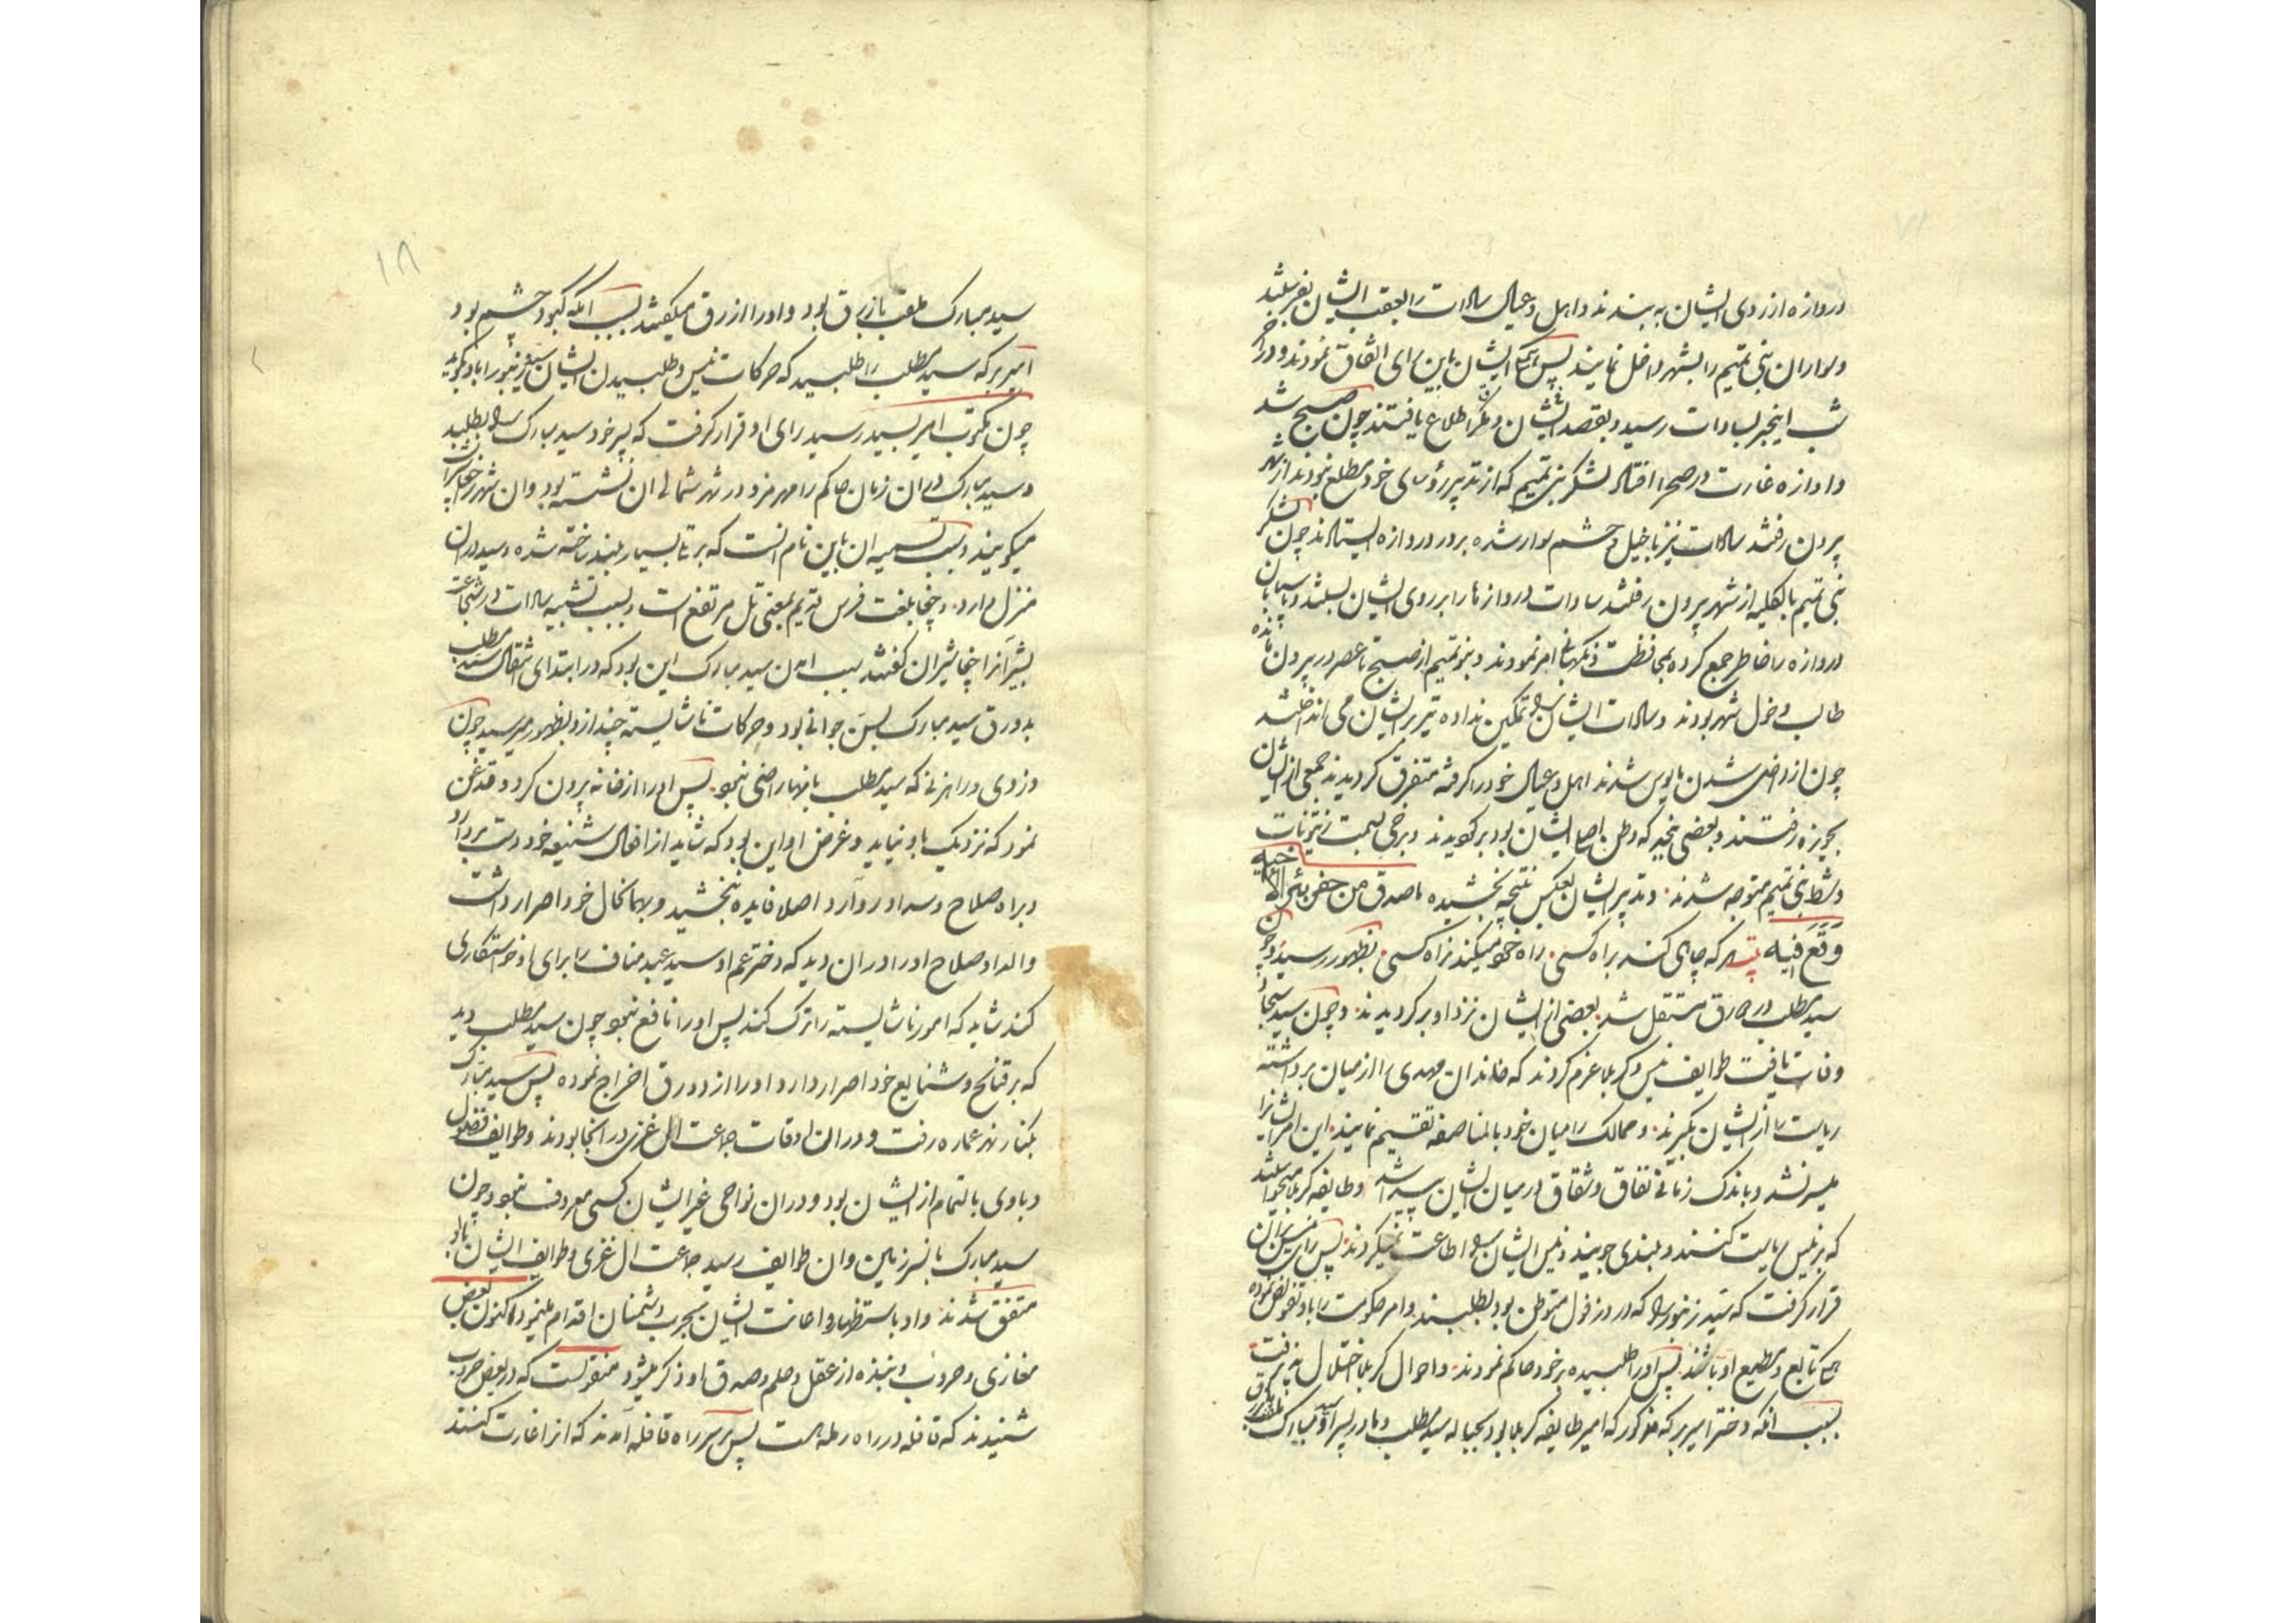 دروازه از روی ایشان به بندند و اهل و عیال سادات را بعقب ایشان بفرستند
و سواران بنی تمیم را بشهر داخل نمایند پس همگی ایشان باین رای اتفاق نمودند و در آخر
شب اینخبر بسادات رسید و بقصد ایشان و مکر اطلاع یافتند چون صبح شد
و اوازه غارت در صحرا افتاد لشکر بنی تمیم که از تدبیر رؤسای خود مطلع نبودند از شهر
بیرون رفتند سادات نیز با خیل و حشم سوار شده بر در دروازه ایستادند چون لشکر
بنی تمیم بالکلیه از شهر بیرون رفتند سادات دروازها را بر روی ایشان بستند و پاسبانان
دروازه را خاطر جمع کرده بمحافظت و نگهبانی امر نمودند و بنو تمیم از صبح تا عصر در بیرون مانده
طالب دخول شهر بودند و سادات ایشان را تمکین نداده تیر بر ایشان می انداختند
چون از داخل شدن مایوس شدند اهل و عیال خود را گرفته متفرق گردیدند جمعی از ایشان
بجویزه رفتند و بعضی بنجد که وطن اصلی ایشان بود برگردیدند و برخی بسمت زیتونات
و شط بنی تمیم متوجه شدند و تدبیر ایشان بعکس نتیجه بخشیده ما صدق من حفر بئرا لاخیه
وقع فیه بیت هر که چاهی کند براه کسی راه خود میکند نه راه کسی بظهور رسید و چون
سید مطلب در دورق مستقل شد بعضی از ایشان نزد او برگردیدند و چون سید سجاد
وفات یافت طوایف نیس و کربلا عزم کردند که خاندان مهدی را از میان برداشته
ریاست را از ایشان بگیرند و ممالک را میان خود بالمناصفه تقسیم نمایند این امر ایشانرا
میسر نشد و باندک زمانی نفاق و شقاق در میان ایشان پیدا شد و طایفه کربلا میخواستند
که بر نیس ریاست کنند و بلندی جویند و نیس ایشان را اطاعت نمیکردند پس رای نیس بران
قرار گرفت که سید زنبور را که در دزفول متوطن بود بطلبند و امر حکومت را باو تفویض نموده
همگی تابع و مطیع او باشند پس او را طلبیده بر خود حاکم نمودند و احوال کربلا اختلال پذیرفت
بسبب انکه دختر امیر برکه مذکور که امیر طایفه کربلا بود بحباله سید مطلب و مادر پسر او سید مبارک
سید مبارک ملقب بازبرق بود و او را ازرق میگفتند بسبب انکه کبود چشم بود
امیر برکه سید مطلب را طلبید که حرکات نیس و طلبیدن ایشان سید زنبور را باو گوید
چون مکتوب امیر بسید رسید رای او قرار گرفت که پسر خود سید مبارک را بطلبد
و سید مبارک در ان زمان حاکم رامهرمز و در شهر شمالی ان نشسته بود و ان شهر را خجاشیران
میگویند و سبب تسمیه ان باین نام انست که بر تل بسیار بلند ساخته شده و سید در ان
منزل دارد و چخا بلغت فرس قدیم بمعنی تل مرتفع است و بسبب تشبیه سادات در شجاعت
بشیر آنرا چخاشیران گفتند سبب امدن سید مبارک این بود که در ابتدای انتقال سید مطلب
بدورق سید مبارک بسن جوانی بود و حرکات ناشایسته چند از و بظهور میرسید چون
دزدی و راهزنی که سید مطلب بانها راضی نبود پس او را از خانه بیرون کرد و قدغن
نمود که نزدیک باو نیاید و غرض او این بود که شاید از افعال شنیعه خود دست بردارد
و براه صلاح و سداد رو آرد اصلا فایده نبخشید و بر همانحال خود اصرار داشت
والد او صلاح او را در ان دید که دختر عم او سید عبد مناف را برای او خواستگاری
کند شاید که امور ناشایسته را ترک کند پس او را نافع نبود چون سید مطلب دید
که بر قبائح و شنایع خود اصرار دارد او را از دورق اخراج نموده پس سید مبارک
بکنار نهر عماره رفت و در ان اوقات جماعت ال غزی در انجا بودند و طوایف فضول
و باوی بالتمام از ایشان بود و در ان نواحی غیر ایشان کسی معروف نبود چون
سید مبارک بانسرزمین و ان طوایف رسید جماعت ال غزی و طوایف ایشان باو
متفق شدند و او باستظهار و اعانت ایشان بحرب دشمنان اقدام مینمود اکنون بعض
مغازی و حروب و نبذه از عقل و حلم و صدق او ذکر میشود منقولست که در بعض حروب
شنیدند که قافله در راه رمله است پس بر سر راه قافله آمدند که انرا غارت کنند